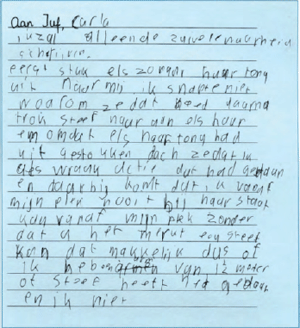 Aan Juf, Carla
ik zal alleende zuvere waarheid
schrijven.
eerst stak els zomaar haar tong
uit naar mij. ik snapte niet
waarom ze dat deed daarna
trok steef naar aan els haar
em omdat els haar tong had
uit gestokken dach ze dat ik
als wraak actie dat had gedaan
en daarbij komt dat ik vanaf
mijn plek nooit bij haar staart
kan vanaf mijn plek zonder
dat u het merkt en steef
kan dat makkelijk dus of
ik heb armen van 12 meter
of steef heeft het gedaan
en ik niet